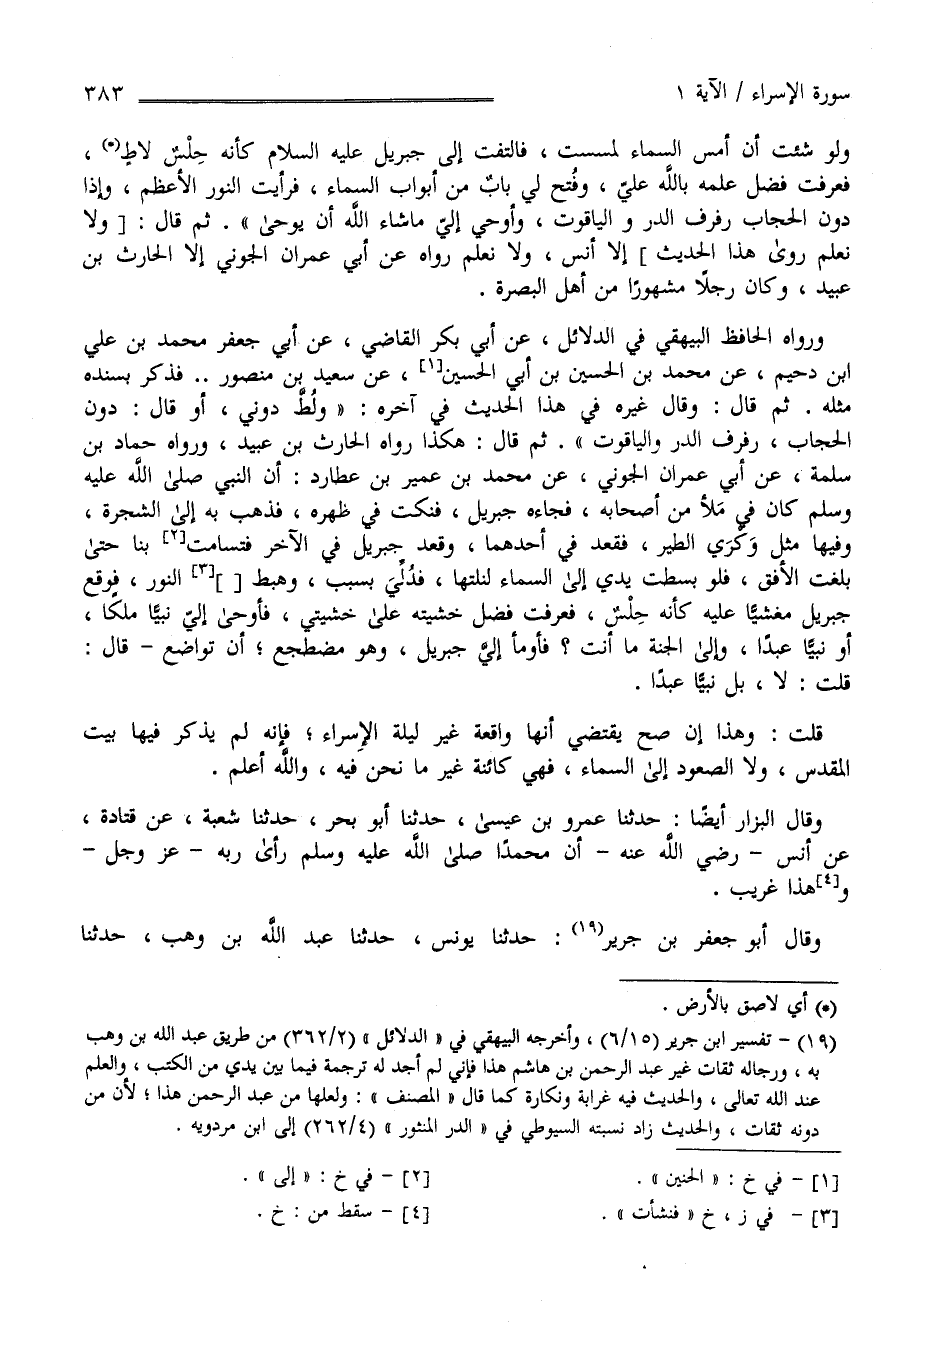 سورة الإسراء / الآية ١ ٣٨٣
ولو شئت أن أمس السماء لمسست ، فالتفت إلى جبريل عليه السلام كأنه حِلْسٌ لاطٍ(*) ،
فعرفت فضل علمه بالله عليّ ، وفُتح لي بابٌ من أبواب السماء ، فرأيت النور الأعظم ، وإذا
دون الحجاب رفرف الدر و الياقوت ، وأوحي إليّ ماشاء الله أن يوحىٰ » . ثم قال : [ ولا
نعلم روىٰ هذا الحديث ] إلا أنس ، ولا نعلم رواه عن أبي عمران الجوني إلا الحارث بن
عبيد ، وكان رجلًا مشهورًا من أهل البصرة .
ورواه الحافظ البيهقي في الدلائل ، عن أبي بكر القاضي ، عن أبي جعفر محمد بن علي
ابن دحيم ، عن محمد بن الحسين بن أبي الحسين[١] ، عن سعيد بن منصور .. فذكر بسنده
مثله . ثم قال : وقال غيره في هذا الحديث في آخره : « ولُطَّ دوني ، أو قال : دون
الحجاب ، رفرف الدر والياقوت » . ثم قال : هكذا رواه الحارث بن عبيد ، ورواه حماد بن
سلمة ، عن أبي عمران الجوني ، عن محمد بن عمير بن عطارد : أن النبي صلىٰ الله عليه
وسلم كان في مَلأ من أصحابه ، فجاءه جبريل ، فنكت في ظهره ، فذهب به إلىٰ الشجرة ،
وفيها مثل وَكْرَي الطير ، فقعد في أحدهما ، وقعد جبريل في الآخر فتسامت[٢] بنا حتىٰ
بلغت الأفق ، فلو بسطت يدي إلىٰ السماء لنلتها ، فدُلِّيَ بسبب ، وهبط [ ][٣] النور ، فوقع
جبريل مغشيًّا عليه كأنه حِلْسٌ ، فعرفت فضل خشيته علىٰ خشيتي ، فأوحىٰ إليّ نبيًّا ملكًا ،
أو نبيًّا عبدًا ، وإلىٰ الجنة ما أنت ؟ فأومأ إليَّ جبريل ، وهو مضطجع ؛ أن تواضع – قال :
قلت : لا ، بل نبيًّا عبدًا .
قلت : وهذا إن صح يقتضي أنها واقعة غير ليلة الإسراء ؛ فإنه لم يذكر فيها بيت
المقدس ، ولا الصعود إلىٰ السماء ، فهي كائنة غير ما نحن فيه ، والله أعلم .
وقال البزار أيضًا : حدثنا عمرو بن عيسىٰ ، حدثنا أبو بحر ، حدثنا شعبة ، عن قتادة ،
عن أنس – رضي الله عنه – أن محمدًا صلىٰ الله عليه وسلم رأىٰ ربه – عز وجل –
و[٤]هذا غريب .
وقال أبو جعفر بن جرير(١٩) : حدثنا يونس ، حدثنا عبد الله بن وهب ، حدثنا
(*) أي لاصق بالأرض .
(١٩) – تفسير ابن جرير (٦/١٥) ، وأخرجه البيهقي في « الدلائل » (٣٦٢/٢) من طريق عبد الله بن وهب
به ، ورجاله ثقات غير عبد الرحمن بن هاشم هذا فإني لم أجد له ترجمة فيما بين يدي من الكتب ، والعلم
عند الله تعالى ، والحديث فيه غرابة ونكارة كما قال « المصنف » : ولعلها من عبد الرحمن هذا ؛ لأن من
دونه ثقات ، والحديث زاد نسبته السيوطي في « الدر المنثور » (٢٦٢/٤) إلى ابن مردويه .
[١] – في خ : « الحنين » . [٢] – في خ : « إلى » .
[٣] – في ز ، خ « فنشأت » . [٤] – سقط من : خ .